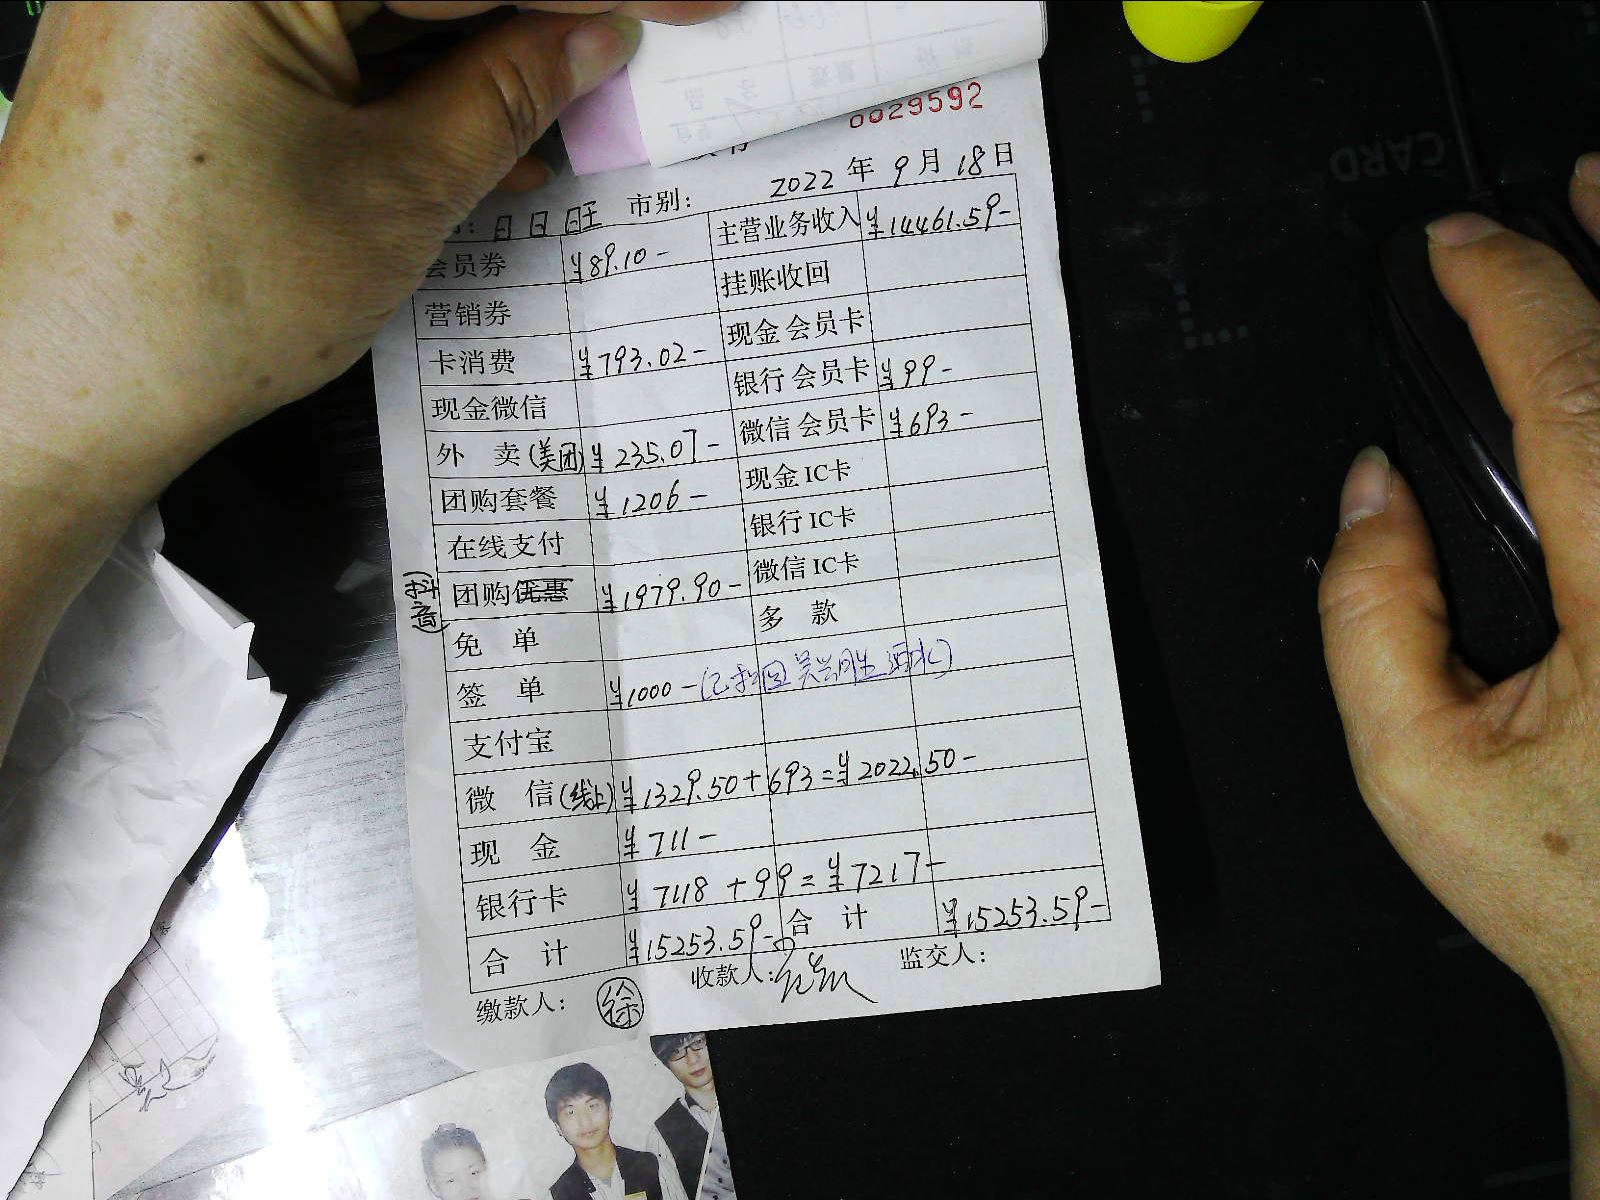 0029592
2022 年 9 月 18 日
日日旺 市别：
会员券 ¥89.10- 主营业务收入 ¥14461.59-
营销券 挂账收回
卡消费 ¥793.02- 现金会员卡
现金微信 银行会员卡 ¥99-
外 卖(美团) ¥235.07- 微信会员卡 ¥693-
团购套餐 ¥1206- 现金IC卡
在线支付 银行IC卡
(抖音) 团购优惠 ¥1979.90- 微信IC卡
免 单 多 款
签 单 ¥1000-
支付宝
微 信(线上) ¥1329.50+693=¥2022.50-
现 金 ¥711-
银行卡 ¥7118+99=¥7217-
合 计 ¥15253.59- 合 计 ¥15253.59-
缴款人： 徐 收款人： 监交人：
CARD